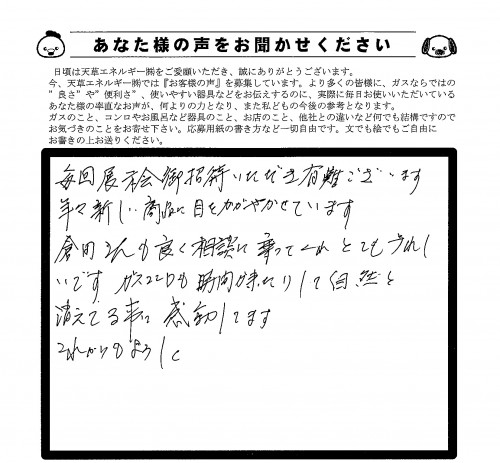 あなた様の声をお聞かせください
日頃は天草エネルギー㈱をご愛顧いただき、誠にありがとうございます。
今、天草エネルギー㈱では『お客様の声』を募集しています。より多くの皆様に、ガスならではの
"良さ"や"便利さ"、使いやすい器具などをお伝えするのに、実際に毎日お使いいただいている
あなた様の率直なお声が、何よりの力となり、また私どもの今後の参考となります。
ガスのこと、コンロやお風呂など器具のこと、お店のこと、他社との違いなど何でも結構ですので
お気づきのことをお寄せ下さい。応募用紙の書き方など一切自由です。文でも絵でもご自由に
お書きの上お送りください。
毎回展示会御招待いただき有難ございます
年々新しい商品に目をかがやかせています
倉田さんも良く相談に乗ってくれとてもうれし
いです ガスコンロも時間が来たりして自然と
消えてる事に感動してます
これからもよろしく